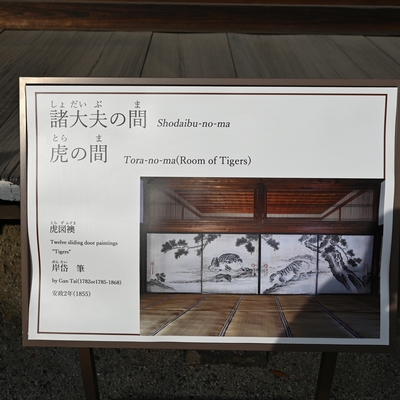 しょ だい ぶ ま
諸大夫の間 Shodaibu-no-ma
とら ま
虎の間 Tora-no-ma(Room of Tigers)
虎図襖
Twelve sliding door paintings
"Tigers"
がん たい
岸岱 筆
by Gan Tai(1782or1785-1868)
安政2年(1855)